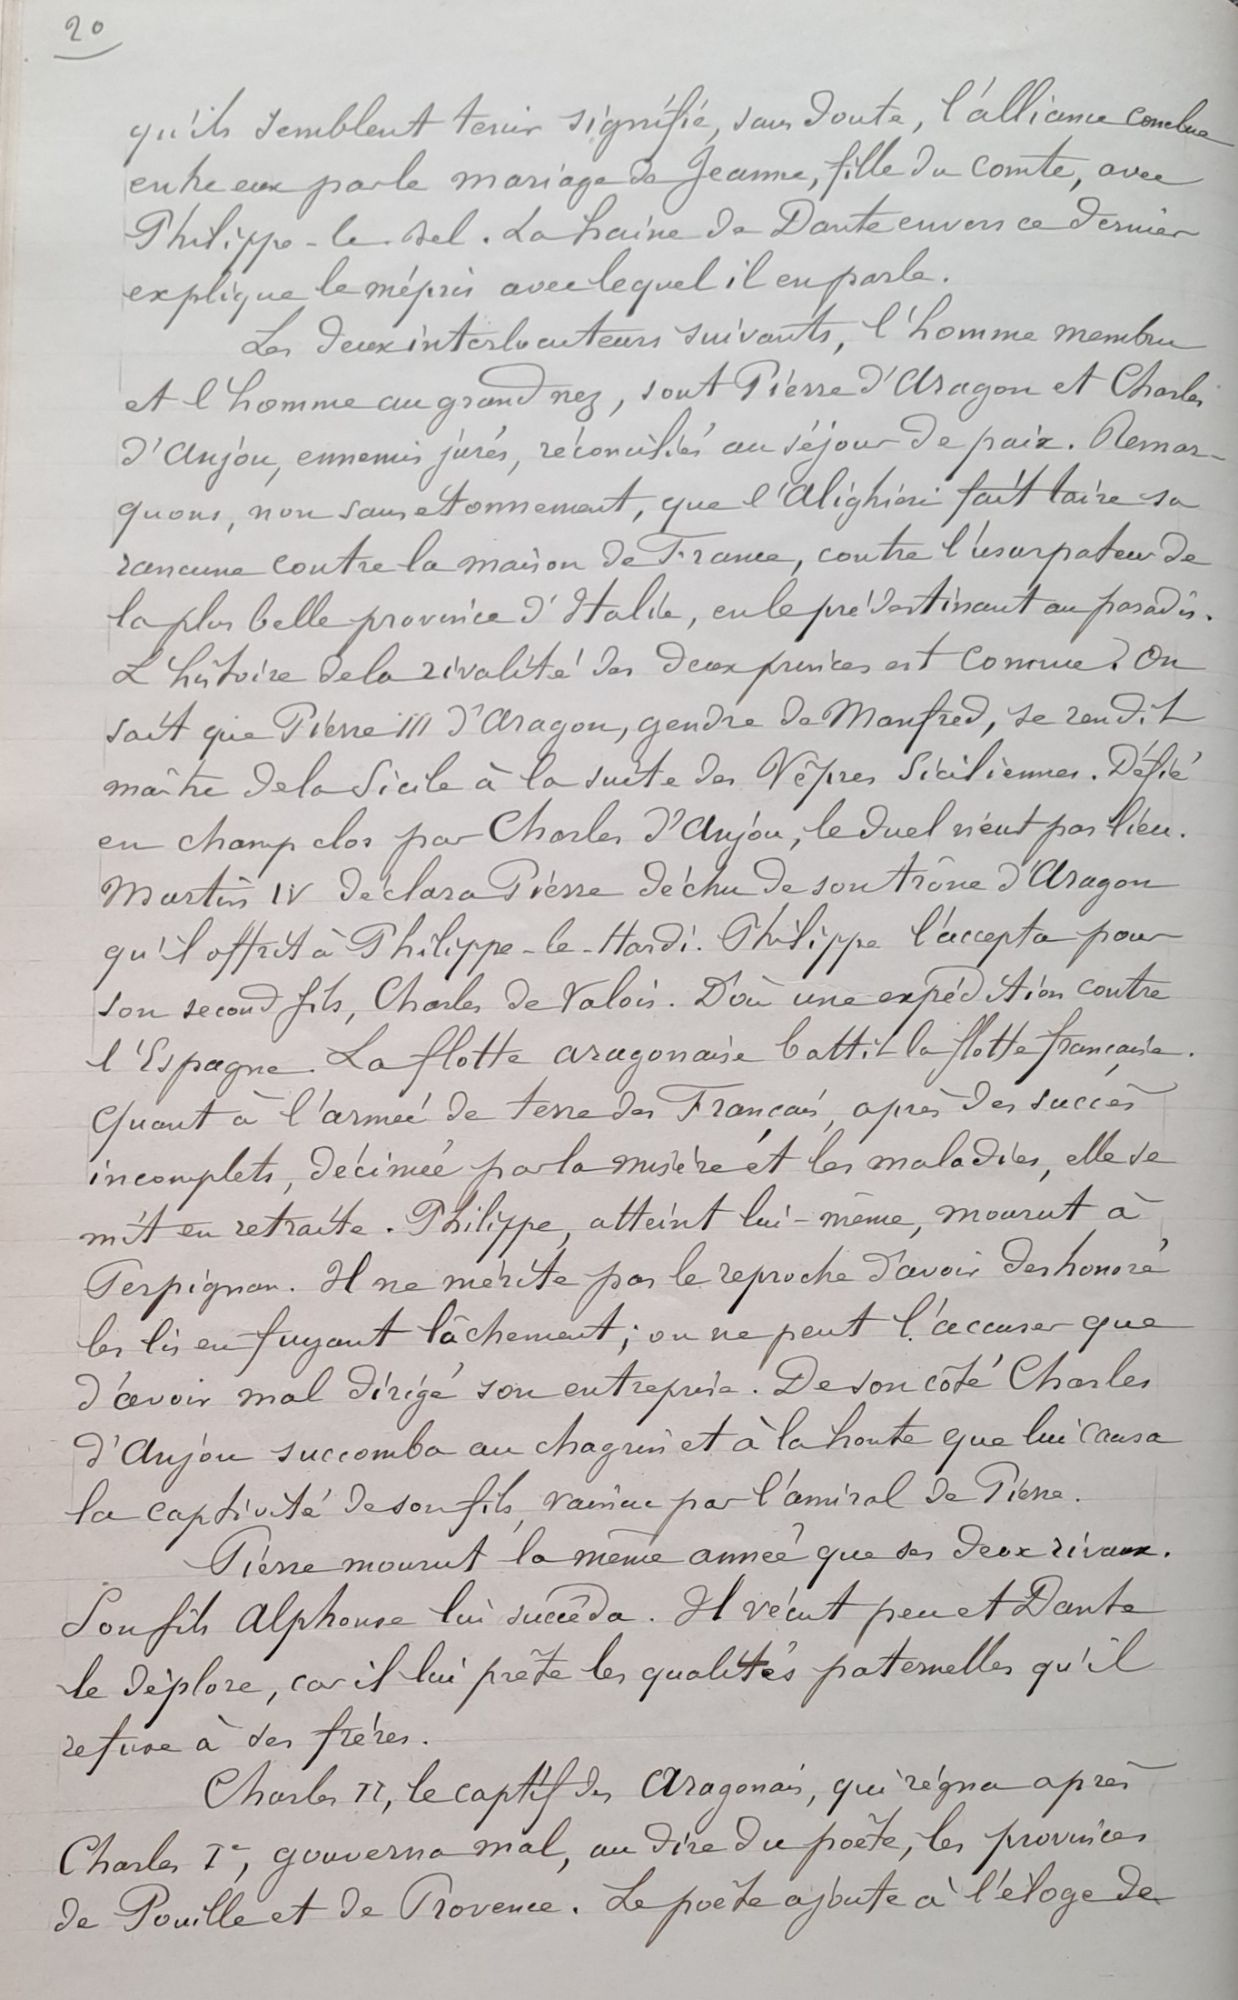 20
qu'ils semblent tenir signifié, sans doute, l'alliance conclue
entre eux par le mariage de Jeanne, fille du comte, avec
Philippe-le-Bel. La haine de Dante envers ce dernier
explique le mépris avec lequel il en parle.
Les deux interlocuteurs suivants, l'homme membru
et l'homme au grand nez, sont Pierre d'Aragon et Charles
d'Anjou, ennemis jurés, réconciliés au séjour de paix. Remar-
quons, non sans etonnement, que l'Alighieri fait taire sa
rancune contre la maison de France, contre l'usurpateur de
la plus belle province d'Italie, en le prédestinant au paradis.
L'histoire de la rivalité des deux princes est connue. On
sait que Pierre III d'Aragon, gendre de Manfred, se rendit
maître de la Sicile à la suite des Vêpres Siciliennes. Défié
en champ clos par Charles d'Anjou, le duel n'eut pas lieu.
Martin IV déclara Pierre déchu de son trône d'Aragon
qu'il offrit à Philippe-le-Hardi. Philippe l'accepta pour
son second fils, Charles de Valois. D'où une expédition contre
l'Espagne. La flotte aragonaise battit la flotte française.
Quant à l'armée de terre des Français, après des succès
incomplets, décimée par la misère et les maladies, elle se
mit en retraite. Philippe, atteint lui-même, mourut à
Perpignan. Il ne mérite pas le reproche d'avoir deshonoré
les lis en fuyant lâchement; on ne peut l'accuser que
d'avoir mal dirigé son entreprise. De son côté Charles
d'Anjou succomba au chagrin et à la honte que lui causa
la captivité de son fils, vaincu par l'amiral de Pierre.
Pierre mourut la même année que ses deux rivaux.
Son fils Alphonse lui succéda. Il vécut peu et Dante
le déplore, car il lui prête les qualités paternelles qu'il
refuse à ses frères.
Charles II, le captif des Aragonais, qui régna après
Charles Ier, gouverna mal, au dire du poète, les provinces
de Pouille et de Provence. Le poète ajoute à l'éloge de